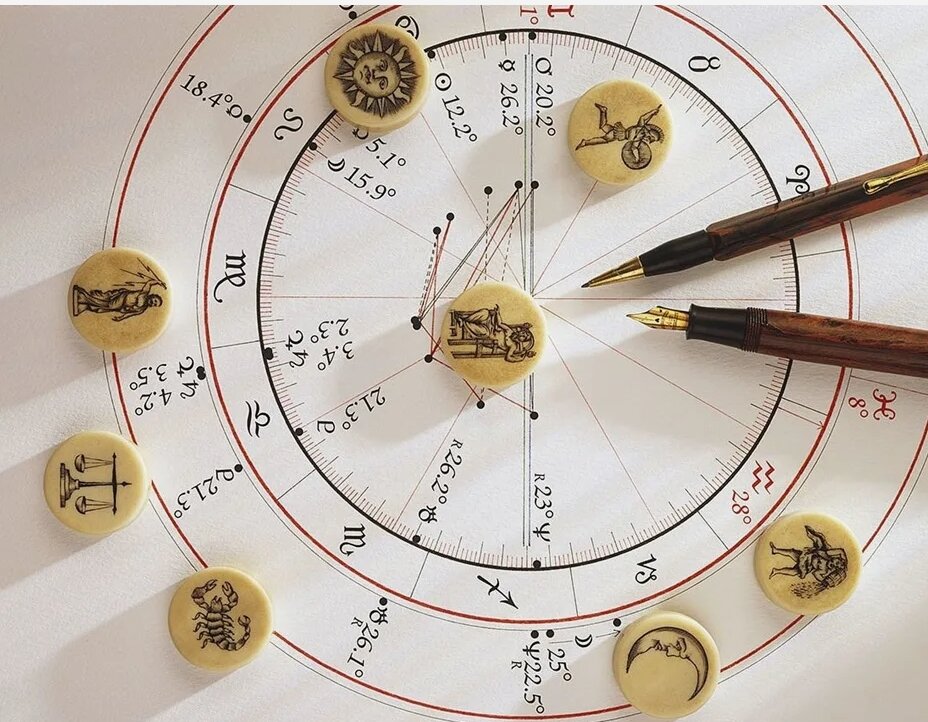 ♊
1°
♉
♈
♌
♍
♎
♏
♐
♑
♒
28°
♓
8°
18.4°♀
☉
12.2°
☿
26.2°
♂
20.2°
5.1°
☽ 15.9°
♃
2.3°
3.4°
♃
3.5°
4.2°
21.3°
21.3°
R 26.2° ♅
R 23° ♆
♅
R 26.1°
☽
25°
♆ 22.5°
R